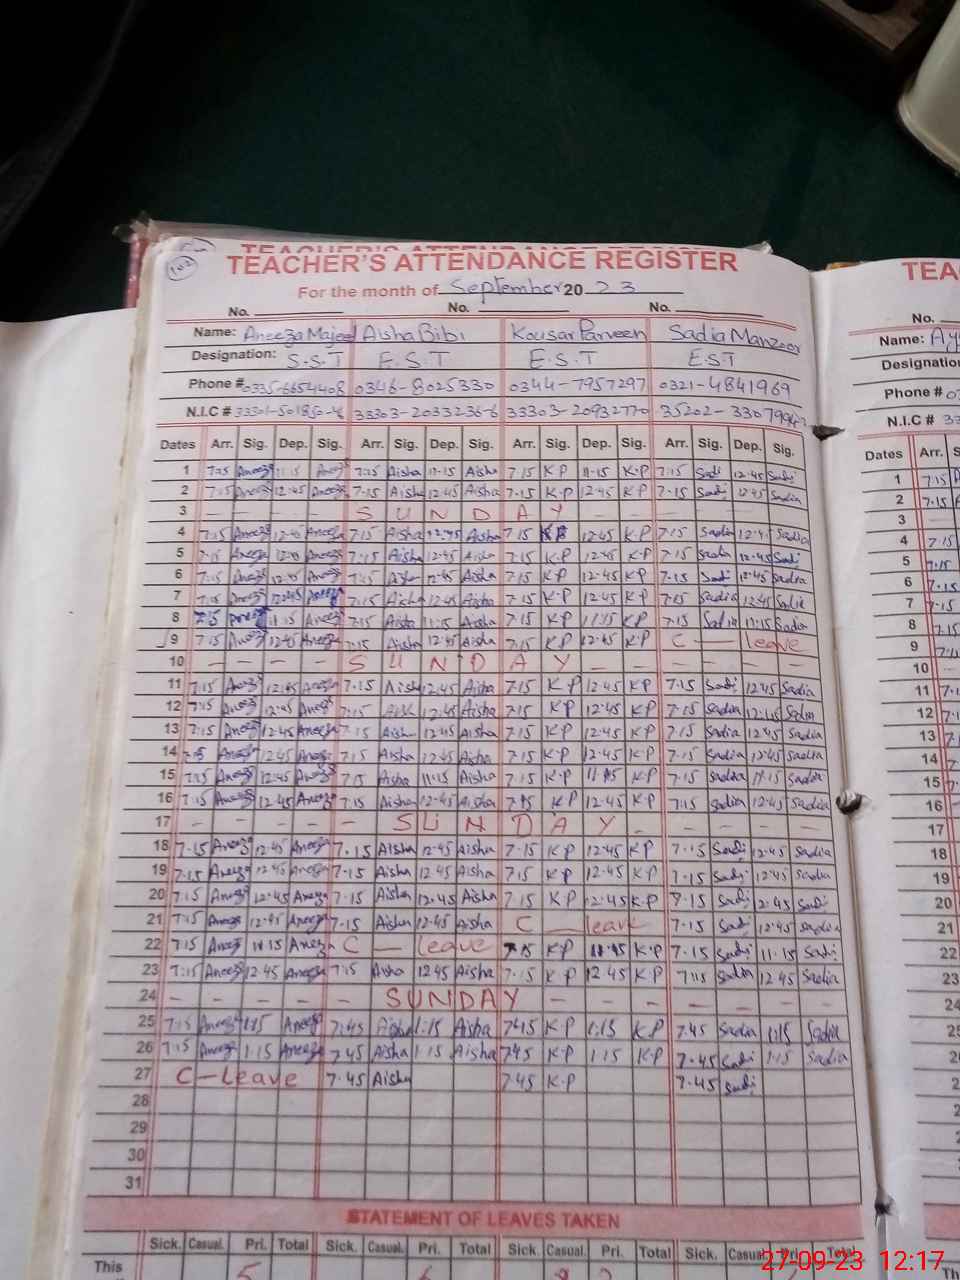 102
TEACHER'S ATTENDANCE REGISTER
TEACHER'S ATTENDANCE REGISTER
For the month of September 20 23
No. No. No.
Name: Aneeza Majeed Aisha Bibi Kousar Parveen Sadia Manzoor
Designation: S.S.T E.S.T E.S.T EST
Phone # 0335-6654408 0346-8025330 0344-7957297 0321-4841969
N.I.C # 33303-2033236-6 33303-20932770 35202-
Dates Arr. Sig. Dep. Sig. Arr. Sig. Dep. Sig. Arr. Sig. Dep. Sig. Arr. Sig. Dep. Sig.
1 7:15 Aneeza 11:15 Aneeza 7:15 Aisha 11-15 Aisha 7.15 K.P 11-15 K.P 7:15 Sadi 12.45 Sadi
2 7:15 Aneeza 12:45 Aneeza 7-15 Aisha 12:45 Aisha 7.15 K.P 12.45 K.P 7.15 Sadi 12.45 Sadia
3 SUNDAY
4 7:15 Aneeza 12:45 Aneeza 7:15 Aisha 12:45 Aisha 7.15 K.P 12.45 K.P 7.15 Sadia 12.45 Sadia
5 7:15 Aneeza 12:45 Aneeza 7:15 Aisha 12:45 Aisha 7.15 K.P 12.45 K.P 7.15 Sadia 12.45 Sadi
6 7:15 Aneeza 12:45 Aneeza 7:15 Aisha 12:45 Aisha 7.15 K.P 12.45 K.P 7.15 Sadi 12.45 Sadia
7 7:15 Aneeza 12:45 Aneeza 7:15 Aisha 12:45 Aisha 7.15 K.P 12.45 K.P 7.15 Sadia 12.45 Sadia
8 7:15 Aneeza 11:15 Aneeza 7:15 Aisha 11:15 Aisha 7.15 K.P 11.15 K.P 7.15 Sadia 11:15 Sadia
9 7:15 Aneeza 12:45 Aneeza 7:15 Aisha 12:45 Aisha 7.15 K.P 12.45 K.P C — leave
10 — — — — SUNDAY — — — — — —
11 7:15 Aneeza 12:45 Aneeza 7.15 Aisha 12:45 Aisha 7.15 K P 12.45 K.P 7.15 Sadi 12.45 Sadia
12 7:15 Aneeza 12:45 Aneeza 7:15 Aisha 12:45 Aisha 7.15 K.P 12.45 K.P 7.15 Sadia 12.45 Sadia
13 7:15 Aneeza 12:45 Aneeza 7:15 Aisha 12:45 Aisha 7.15 K.P 12.45 K.P 7.15 Sadia 12.45 Sadia
14 7:15 Aneeza 12:45 Aneeza 7:15 Aisha 12:45 Aisha 7.15 K.P 12.45 K.P 7.15 Sadia 12.45 Sadia
15 7:15 Aneeza 12:45 Aneeza 7:15 Aisha 11:15 Aisha 7.15 K.P 7.15 Sadia 11.15 Sadia
16 7:15 Aneeza 12:45 Aneeza 7:15 Aisha 12:45 Aisha 7.15 K.P 12.45 K.P 7:15 Sadia 12:45 Sadia
17 — — — — — SUNDAY — — — — —
18 7.15 Aneeza 12:45 Aneeza 7.15 Aisha 12:45 Aisha 7.15 K.P 12.45 K.P 7.15 Sadi 12.45 Sadia
19 7.15 Aneeza 12:45 Aneeza 7.15 Aisha 12:45 Aisha 7.15 K.P 12.45 K.P 7.15 Sadi 12.45 Sadia
20 7:15 Aneeza 12:45 Aneeza 7.15 Aisha 12.45 Aisha 7.15 K.P 12.45 K.P 7.15 Sadi 12.45 Sadi
21 7:15 Aneeza 12:45 Aneeza 7.15 Aisha 12:45 Aisha C — leave 7.15 Sadi 12:45 Sadia
22 7:15 Aneeza 11:15 Aneeza C — leave 7.15 K.P K.P 7.15 Sadi 11.15 Sadi
23 7:15 Aneeza 12:45 Aneeza 7:15 Aisha 12:45 Aisha 7.15 K.P 12.45 K.P 7:15 Sadia 12.45 Sadia
24 — — — — — SUNDAY — — — — — —
25 7:15 Aneeza 1:15 Aneeza 7:45 Aisha 1:15 Aisha 7:45 K.P 1:15 K.P 7.45 Sadia 1:15 Sadia
26 7:15 Aneeza 1:15 Aneeza 7.45 Aisha 1:15 Aisha 7:45 K.P 1:15 K.P 7.45 Sadi 1:15 Sadia
27 C-Leave 7.45 Aisha 7.45 K.P 7.45 Sadi
28
29
30
31
STATEMENT OF LEAVES TAKEN
Sick. Casual. Pri. Total Sick. Casual. Pri. Total Sick. Casual. Pri. Total Sick. Casual. Pri. Total
This
TEA
No.
Name: Ay
Designation
Phone # 0
N.I.C # 33
Dates Arr. S
1 7:15
2 7.15
3
4 7:15
5 7:15
6 7:15
7 7:15
8 7.15
9
10
11
12
13
14
15
16
17
18
19
20
21
22
23
24
27-09-23 12:17